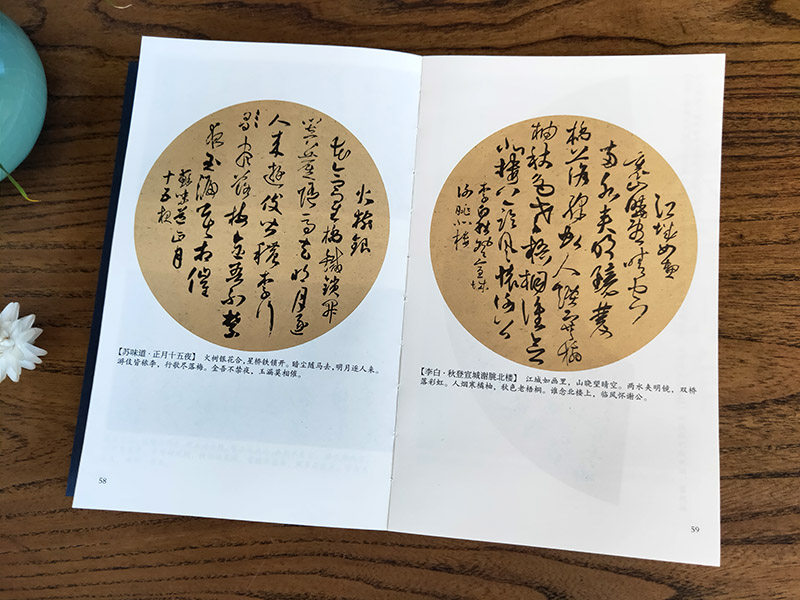 火樹銀
花合星橋鐵鎖開
暗塵隨馬去明月逐
人來遊伎皆穠李行
歌盡落梅金吾不禁
夜玉漏莫相催
蘇味道正月
十五夜
【苏味道·正月十五夜】 火树银花合，星桥铁锁开。暗尘随马去，明月逐人来。
游伎皆秾李，行歌尽落梅。金吾不禁夜，玉漏莫相催。
58
江城如畫
裏山曉望晴空
兩水夾明鏡雙
橋落彩虹人煙寒橘
柚秋色老梧桐誰念
北樓上臨風懷謝公
李白秋登宣城
謝朓北樓
【李白·秋登宣城谢朓北楼】 江城如画里，山晓望晴空。两水夹明镜，双桥
落彩虹。人烟寒橘柚，秋色老梧桐。谁念北楼上，临风怀谢公。
59